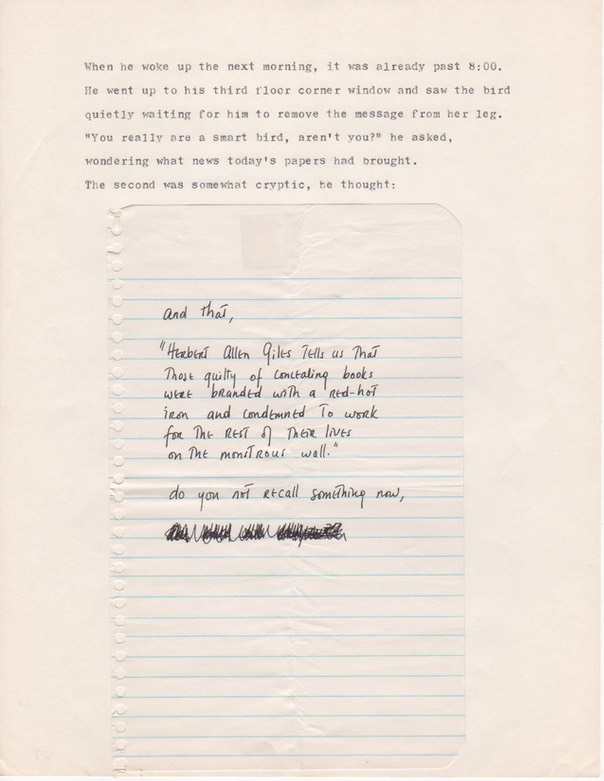 When he woke up the next morning, it was already past 8:00.
He went up to his third floor corner window and saw the bird
quietly waiting for him to remove the message from her leg.
"You really are a smart bird, aren't you?" he asked,
wondering what news today's papers had brought.
The second was somewhat cryptic, he thought:
and that,
"Herbert Allen Giles tells us that
those guilty of concealing books
were branded with a red-hot
iron and condemned to work
for the rest of their lives
on the monstrous wall."
do you not recall something now,